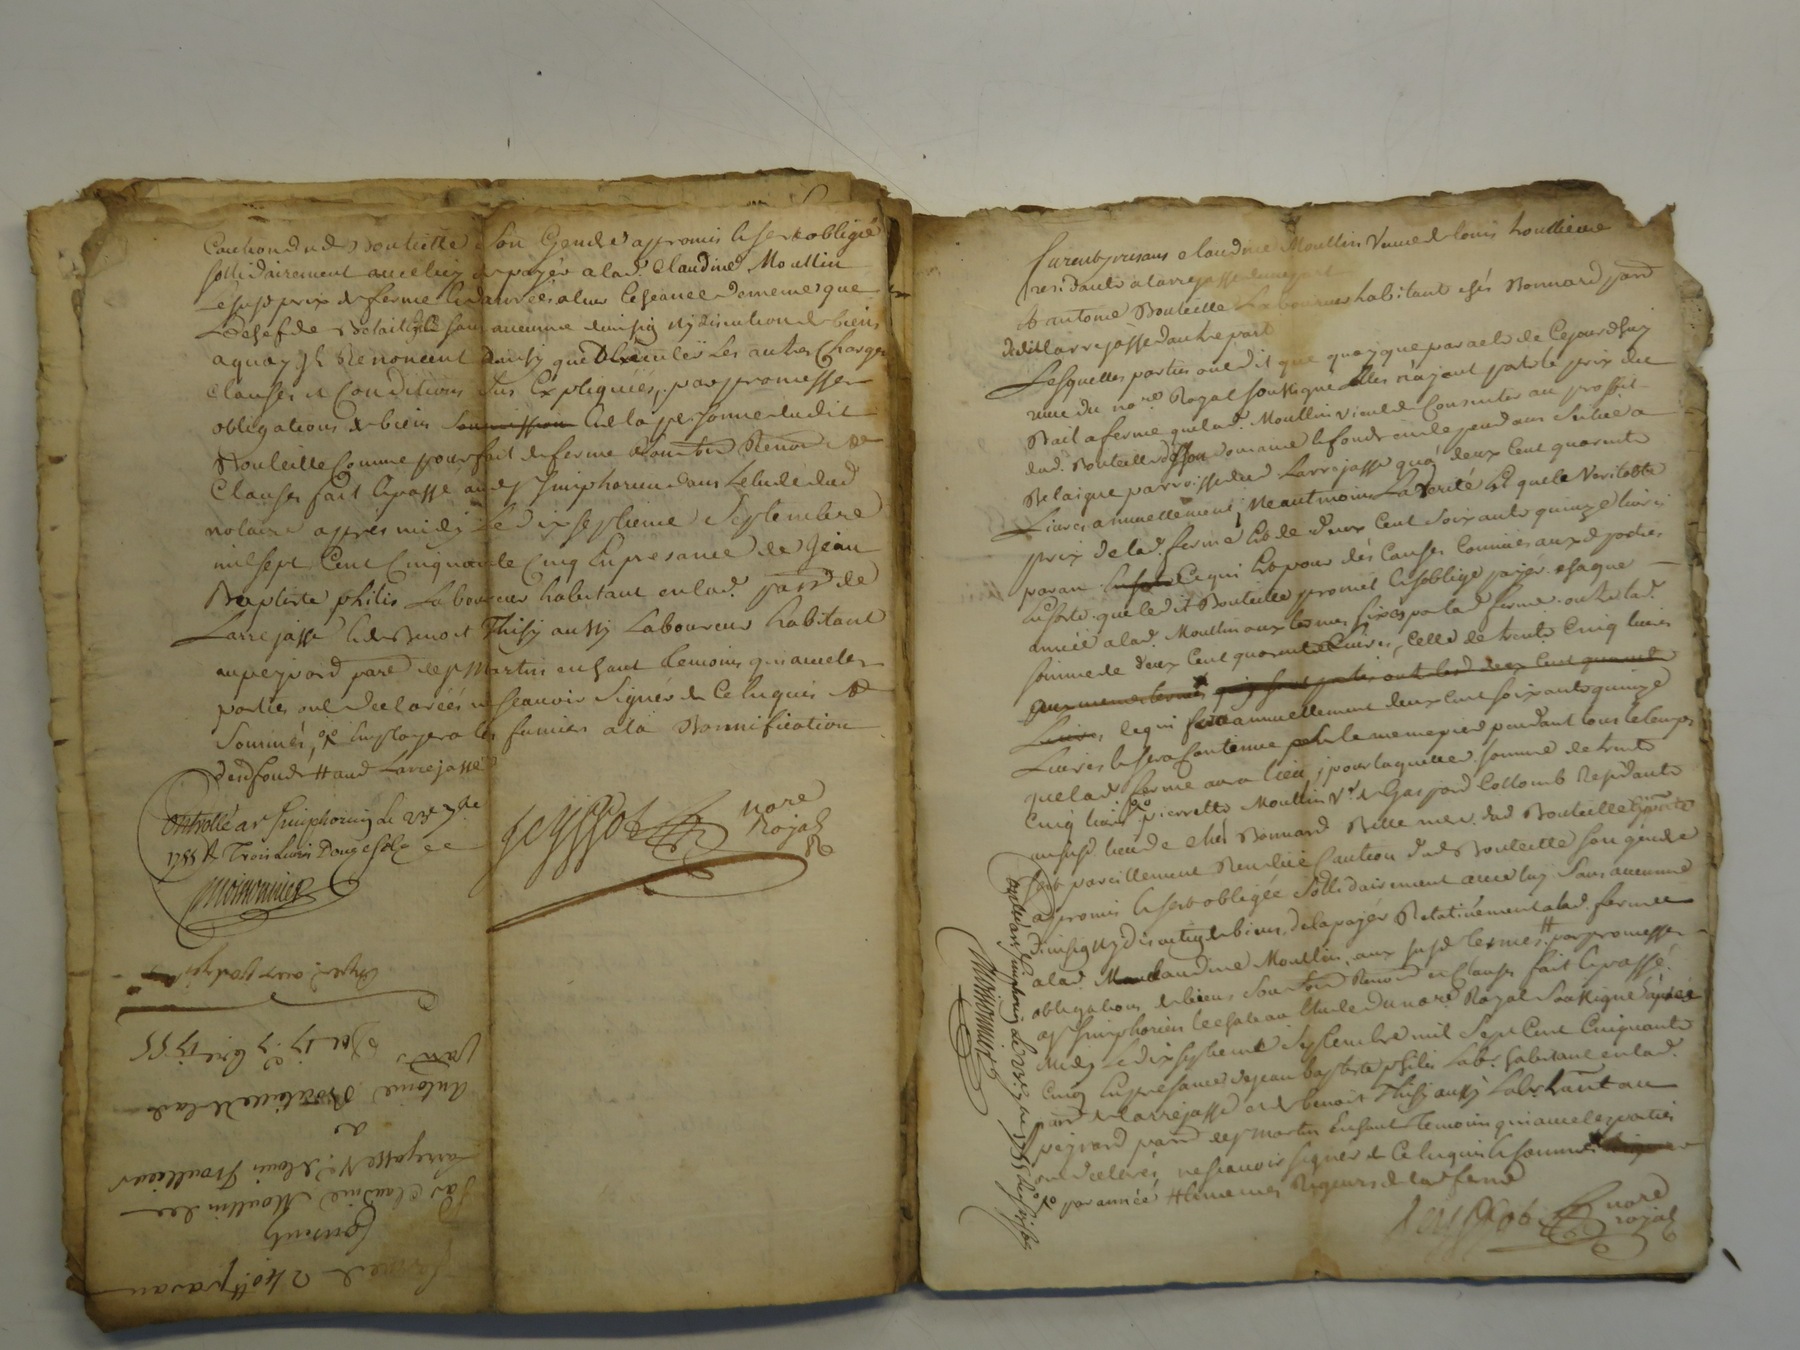 Caution dud. Bouteille son Gendre a promis & sest obligée
sollidairement avec luy de payer a lad. Claudine Moullin
le susd. prix de ferme & danrées aluer Escheance de meme que
Le chef de Betail, le sans aucune division ny discution de biens
a quoy ils Renoncent ainsy que dexecuter Les autres Charges
Clauses et Conditions sus Expliquées, par promesses
obligations de biens soumission de la personne dudit
Bouteille Comme pour fait de ferme Renon. &
Clauses fait & passé aud. St Simphorien dans Létude dud.
notaire apprés midy Le dix septieme Septembre
mil sept Cent Cinquante Cinq En presance de Jean
Baptiste philis Laboureur habitant en lad. parr. de
Larrejasse & de Benoit Thisy aussy Laboureur habitant
au peyrard parr. de St Martin en haut temoins qui avec les
parties ont declarées ne sçavoir signer de Ce Enquis &
Sommés, & Employera les fumiers a la Bonnification
desd. fonds # aud. Larrejasse
Controllé a St Simphorien Le 7bre
1755 R. Trois Livres Douze sols
Moironnier
Jeyssob nore
Royal
Expéd. aux parties
pard.
Du 17e 7bre 1755
Antoine Bouteille Lab.
a
Larrejasse Ve de Louis Houllieue
Par Claudine Moullin de
Consenty
ferme de 240# par an
furent presans Claudine Moullin Veuve de Louis houllieue
residante a Larrejasse d'une part
& antoine Bouteille Laboureur habitant chés Bonnard parr.
dudit Larrejasse d'autre part
Lesquelles parties ont dit que quoyque par acte de Cejourdhuy
receu du nore. Royal soussigné Elles n'ayent porté le prix du
Bail a ferme que lad. Moullin vient de Consentir au proffit
dud. Bouteille de son domaine & fonds en dependans scitué a
Belaigue parroisse dud. Larrejasse qu'a deux Cent quarente
Livres annuellement; Neantmoins La verité Est que le Veritable
prix de lad. ferme Est de deux Cent soixante quinze livres
par an Ce qui Est pour des Causes Connües auxd. parties
En sorte que ledit Bouteille promet & s'oblige payer chaque
année a lad. Moullin aux termes fixés par lad. ferme outre lad.
somme de deux Cent quarente Livres, Celle de trente Cinq livres
aux memes termes
Livres, ce qui fera annuellement deux Cent soixante quinze
Livres & sera Continué sur le meme pied pendant tous le temps
que lad. ferme aura lieu; pour laquelle somme de trente
Cinq livres pierrette Moullin Ve de Gaspard Collomb Residante
au susd. lieu de chés Bonnard Belle mere dud. Bouteille
sest pareillement Rendüe Caution dud. Bouteille son gendre
a promis & sest obligée sollidairement avec luy sans aucune
division ny discution de biens, de la payer Relativement a lad. ferme
a lad. Claudine Moullin, aux susd. termes # par promesses
obligations de biens Renon. et Clauses fait & passé
a St Simphorien le chateau Etude du nore. Royal soussigné aprés
Midy Le dix septieme Septembre mil Sept Cent Cinquante
Cinq En presance de jean baptiste philis Labr. habitant en lad.
parr. de Larrejasse et de benoit Thisy aussy Labr. hant. au
peyrard parr. de St Martin En haut Temoins qui avec les parties
ont declarés ne sçavoir signer de Ce Enquis & sommés
par année # & memes Rigueurs de lad. ferme
Jeyssob nore
royal
Controllé a St Simphorien Le 7bre 1755 Reçu
Moironnier